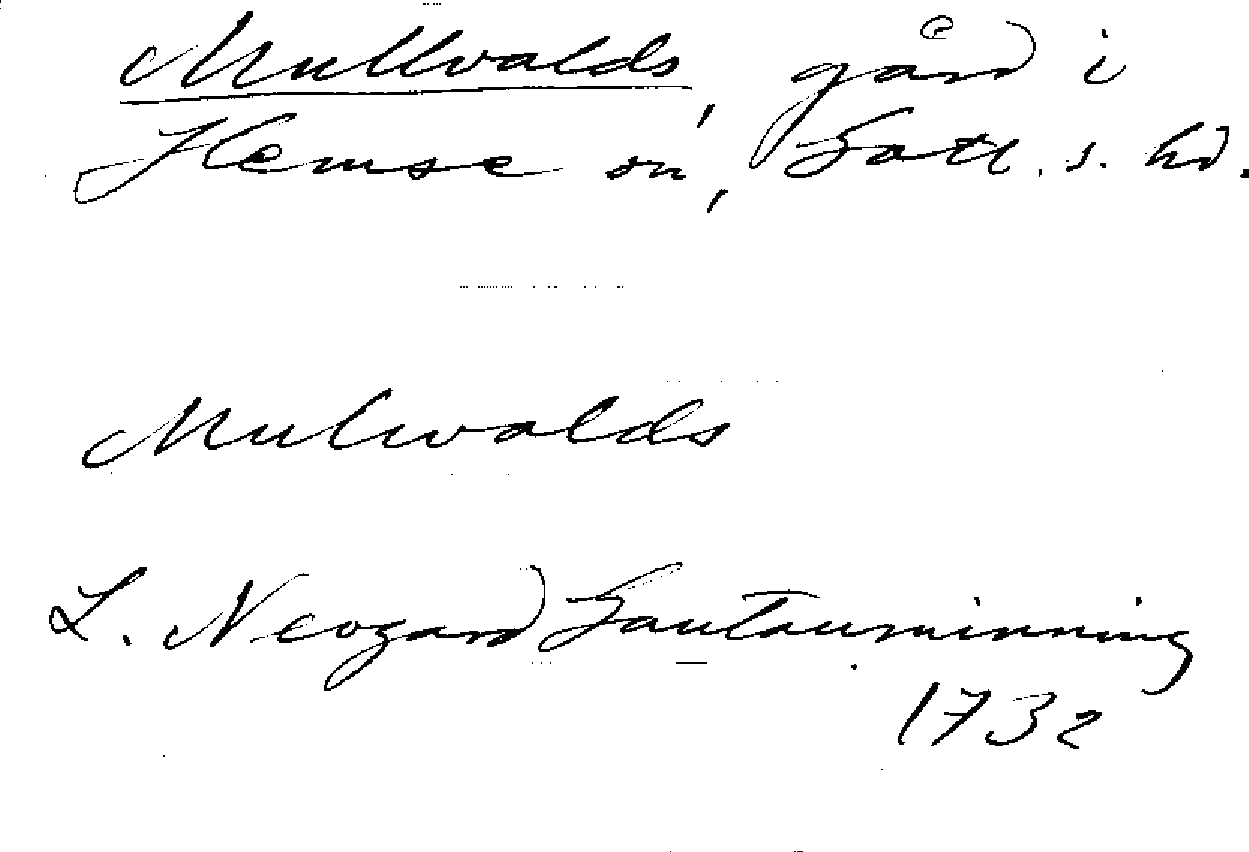 Mullvalds, gård i
Hemse sn, Gotl. s. hd.
Mulvalds
L. Neogard Gautauminning
1732